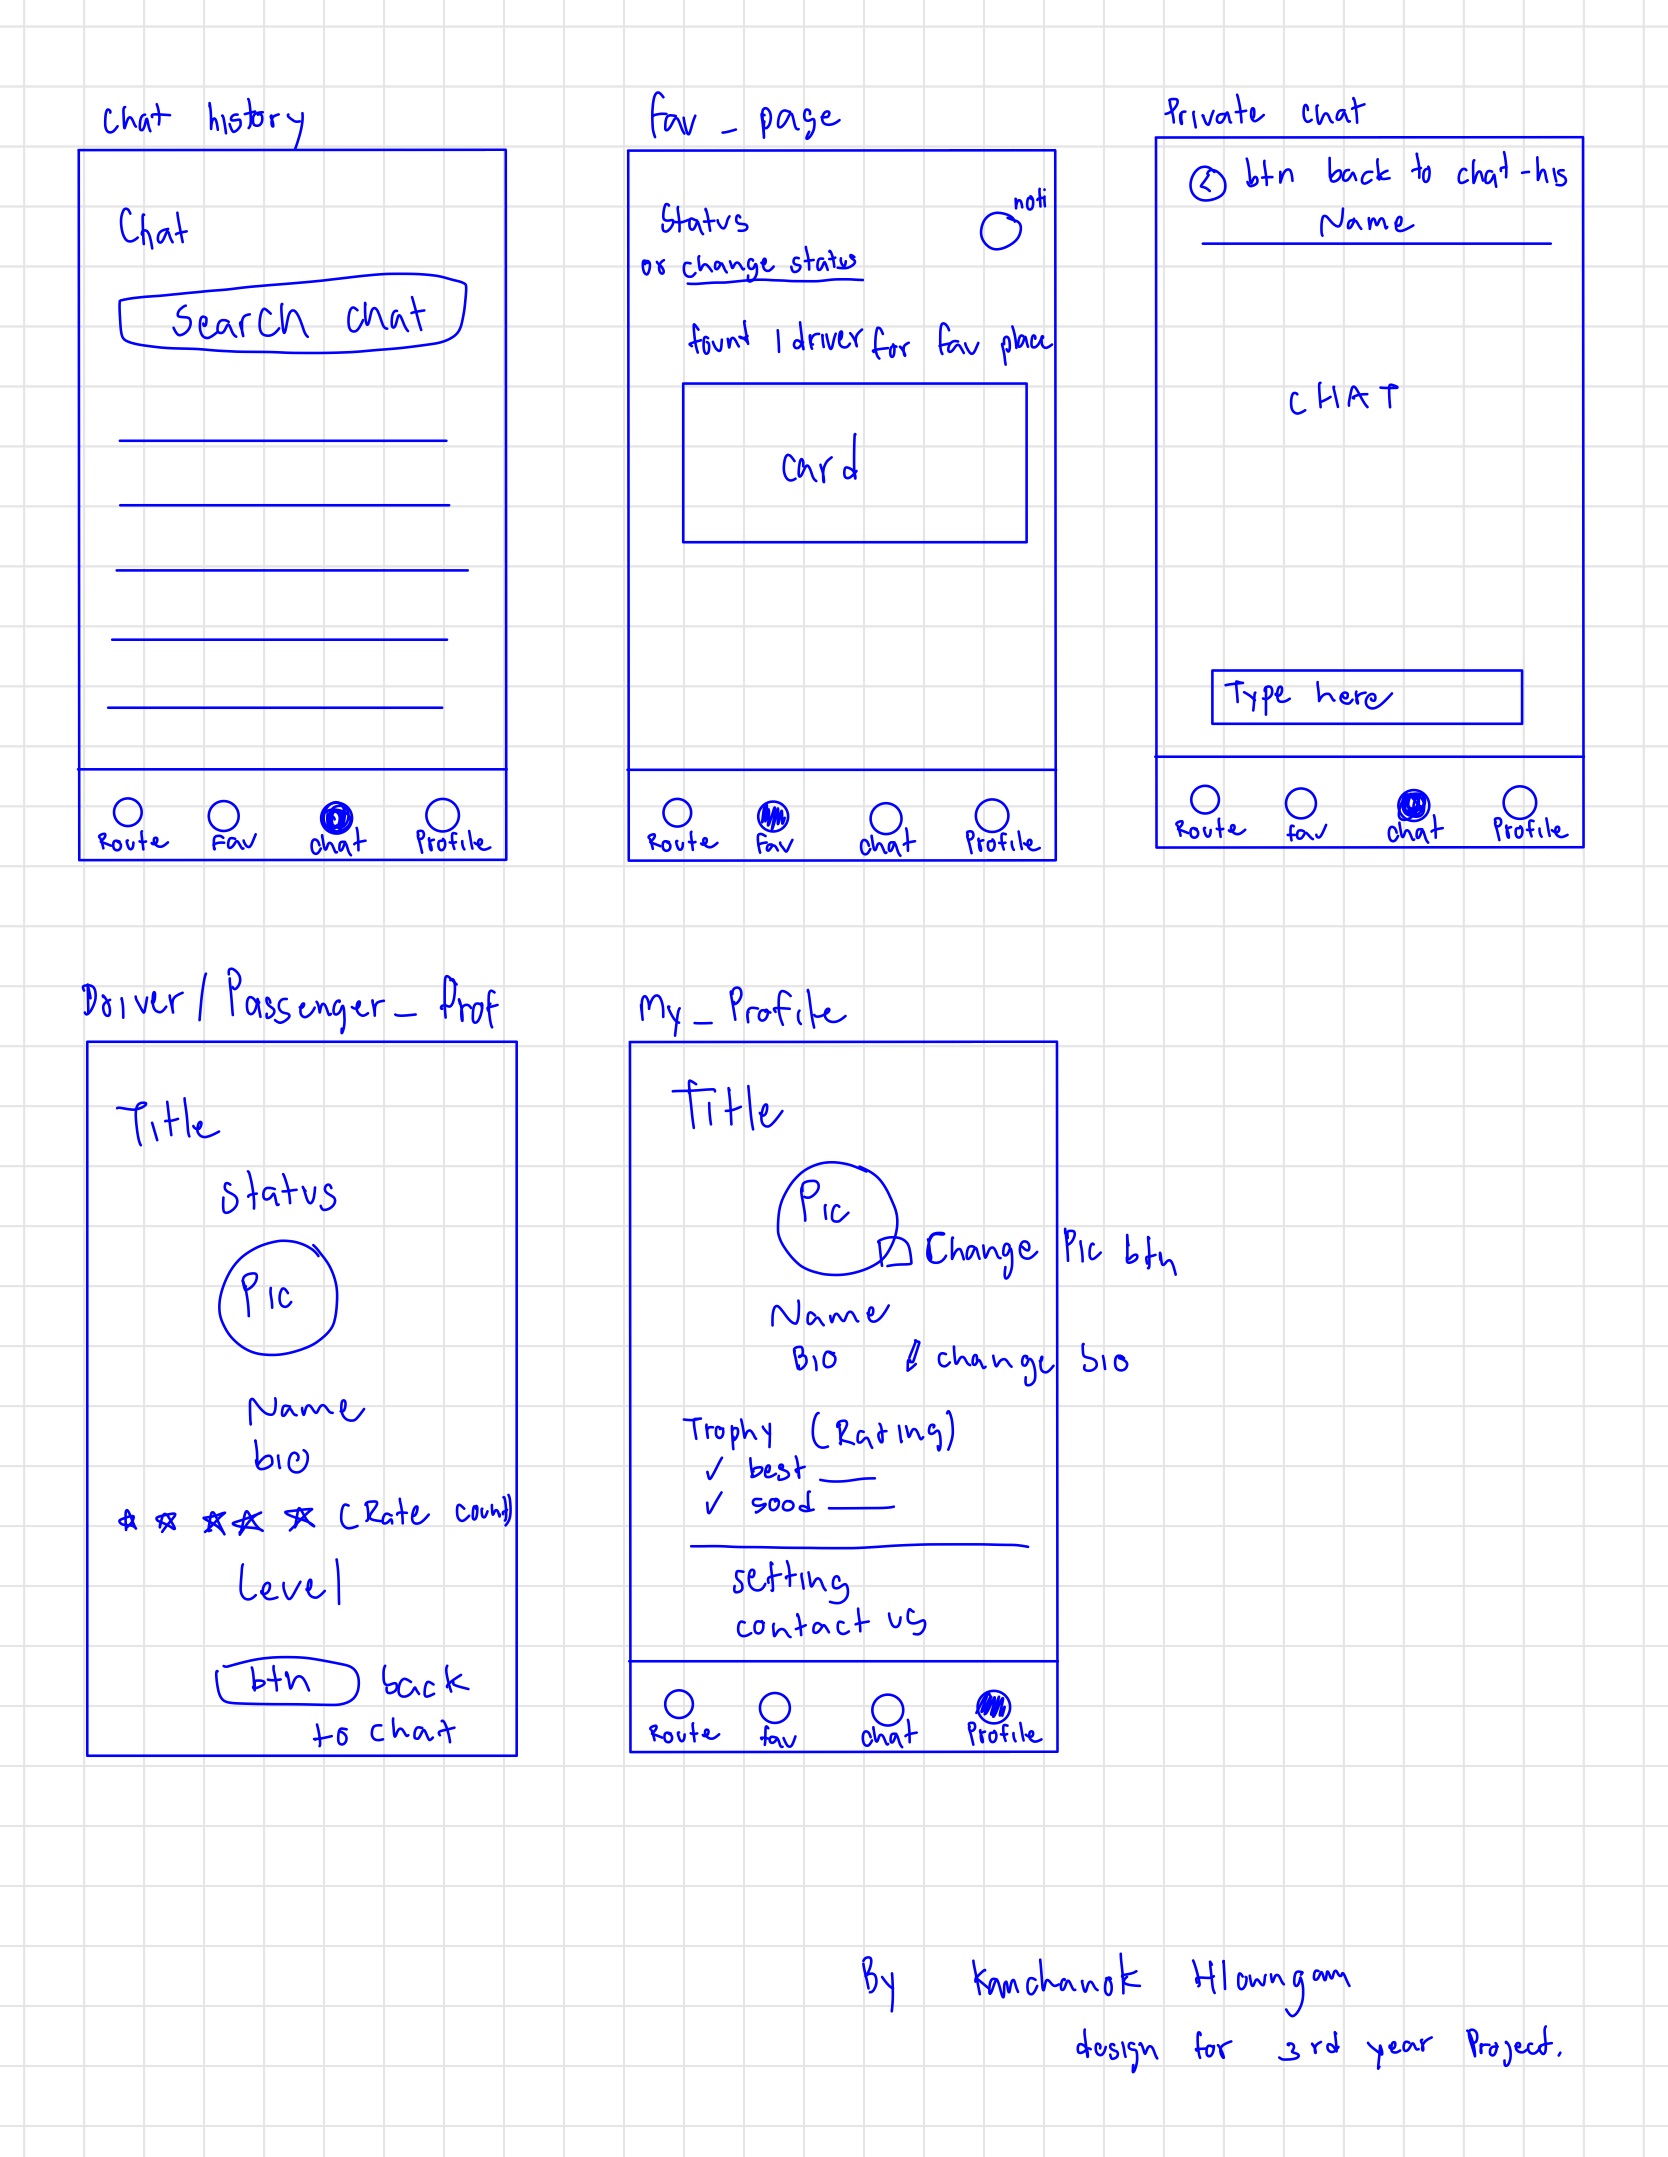 Chat history
Chat
Search chat
Route Fav chat Profile
fav_page
Status
noti
or change status
fount 1 driver for fav place
card
Route Fav chat Profile
Private chat
< btn back to chat-his
Name
CHAT
Type here
Route fav chat Profile
Driver/Passenger_Prof
Title
Status
Pic
Name
bio
(Rate count)
Level
btn back
to chat
My_Profile
Title
Pic
Change Pic btn
Name
Bio change bio
Trophy (Rating)
✓ best
✓ good
setting
contact us
Route fav chat Profile
By Kanchanok Hlowngam
design for 3rd year Project.